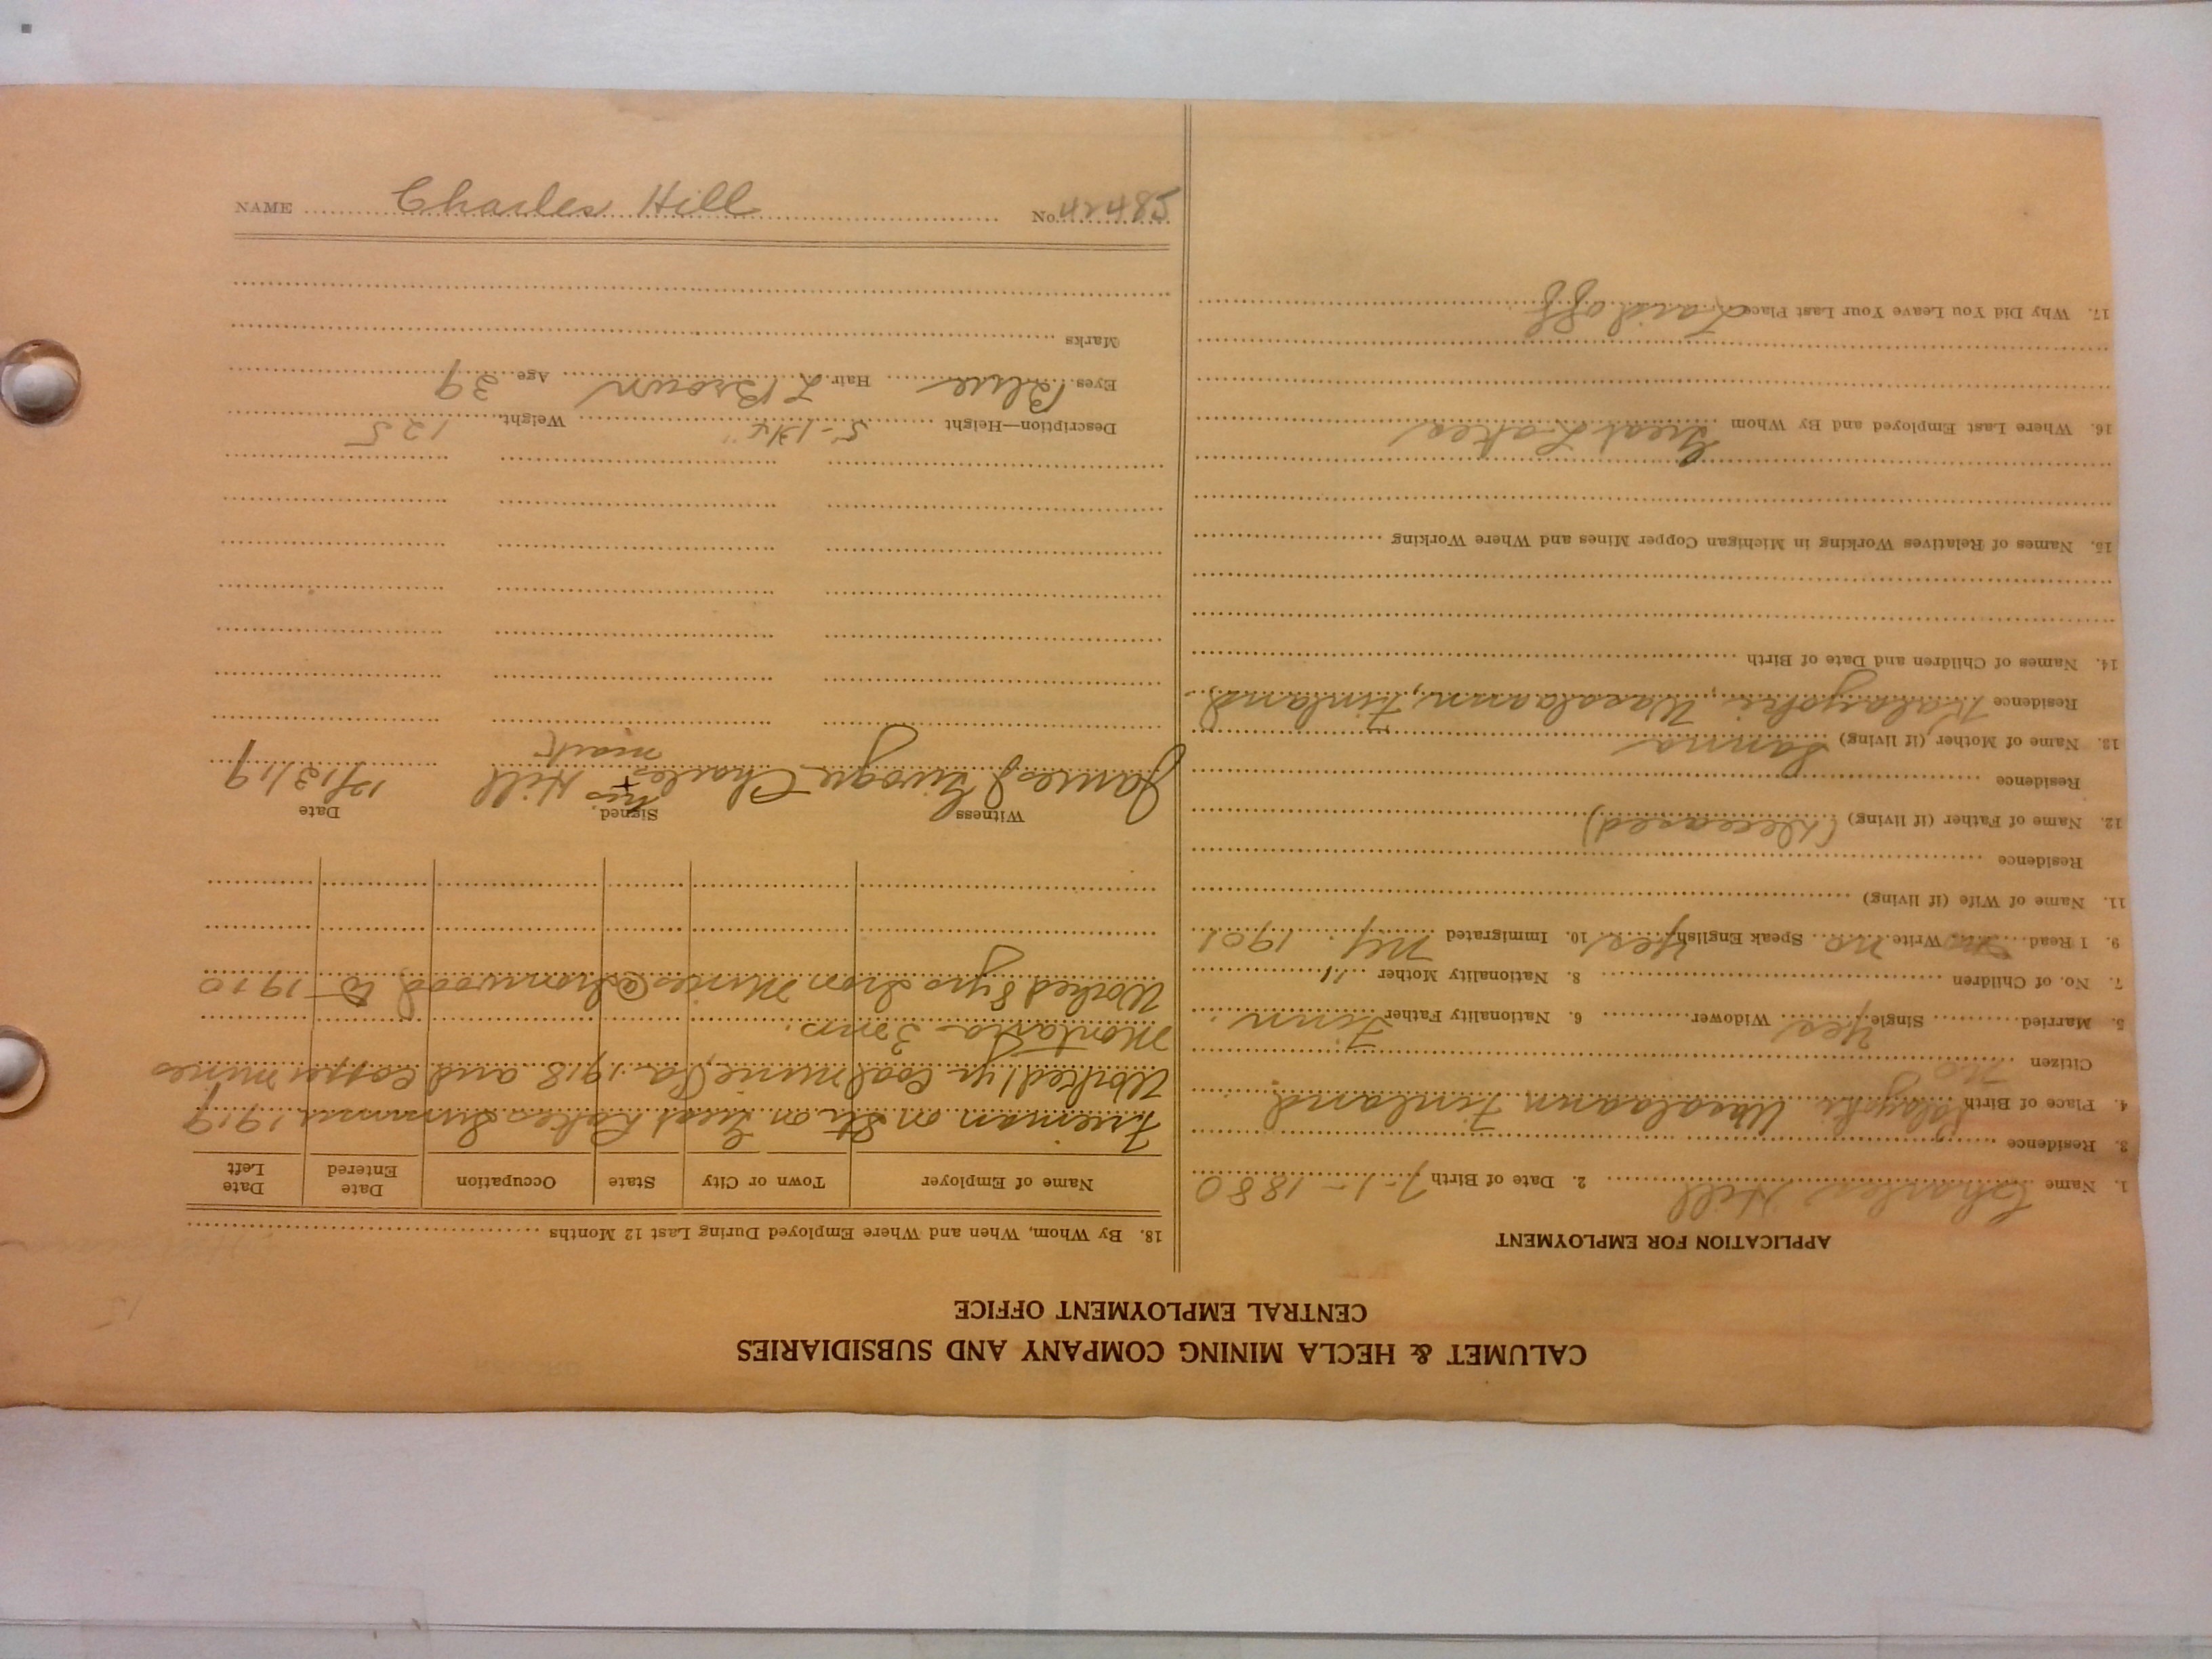 CALUMET & HECLA MINING COMPANY AND SUBSIDIARIES
CENTRAL EMPLOYMENT OFFICE
APPLICATION FOR EMPLOYMENT
1. Name Charles Hill 2. Date of Birth 7-1-1880
3. Residence
4. Place of Birth Kalayoki Wasalaann Finland
Citizen no
5. Married Single Yes Widower 6. Nationality Father Finn
7. No. of Children 8. Nationality Mother "
9. I Read no Write no Speak English Yes 10. Immigrated NY. 1901
11. Name of Wife (if living)
Residence
12. Name of Father (if living) (Deceased)
Residence
13. Name of Mother (if living) Sanna
Residence Kalayoki, Wasalaann, Finland
14. Names of Children and Date of Birth
15. Names of Relatives Working in Michigan Copper Mines and Where Working
16. Where Last Employed and By Whom Great Lakes
17. Why Did You Leave Your Last Place Laid off
18. By Whom, When and Where Employed During Last 12 Months
Name of Employer Town or City State Occupation Date Entered Date Left
Fireman on Str. on Great Lakes Summer 1919
Worked 1 yr Coal mine, Pa. 1918 and copper mines
Montana 3 mos.
Worked 8 yrs Iron Mines @ Ironwood to 1910
Witness Signed Date
James J Charles his + mark Hill 12/13/19
Description—Height 5-1 3/4" Weight 125
Eyes Blue Hair L Brown Age 39
Marks
NAME Charles Hill No. 42485